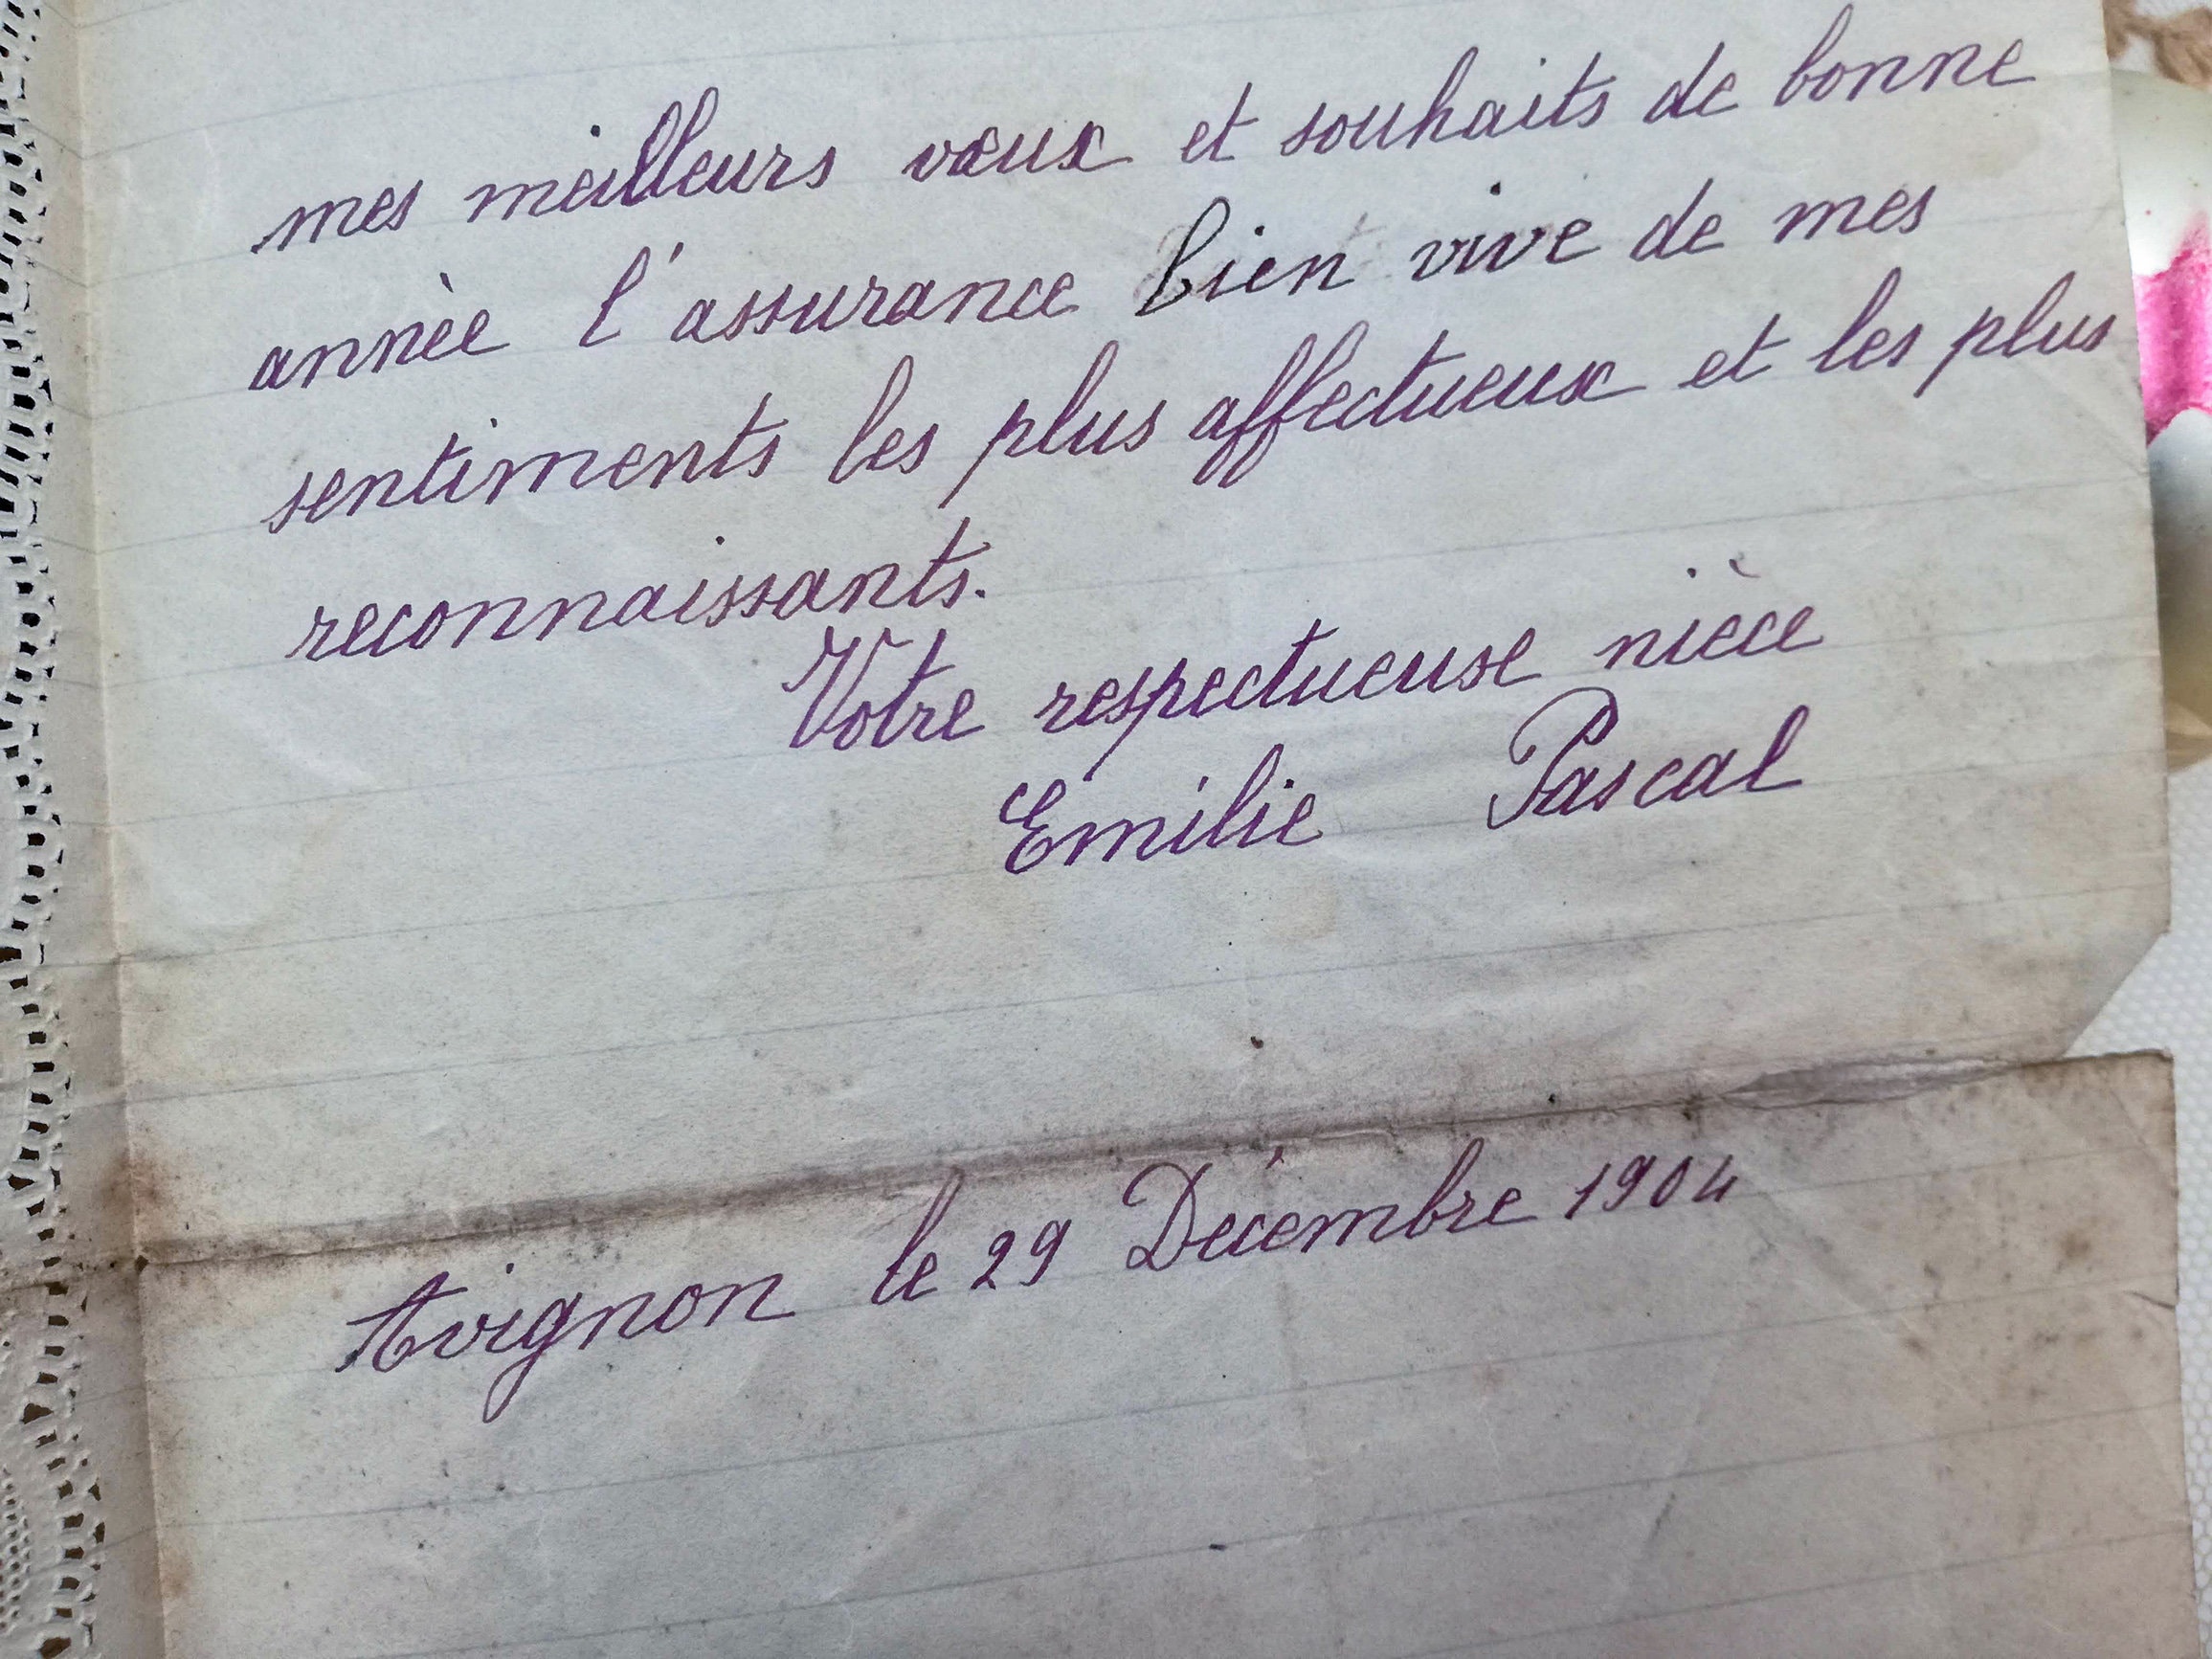 mes meilleurs vœux et souhaits de bonne
annèe l'assurance bien vive de mes
sentiments les plus affectueux et les plus
reconnaissants.
Votre respectueuse nièce
Emilie Pascal
Avignon le 29 Décembre 1904